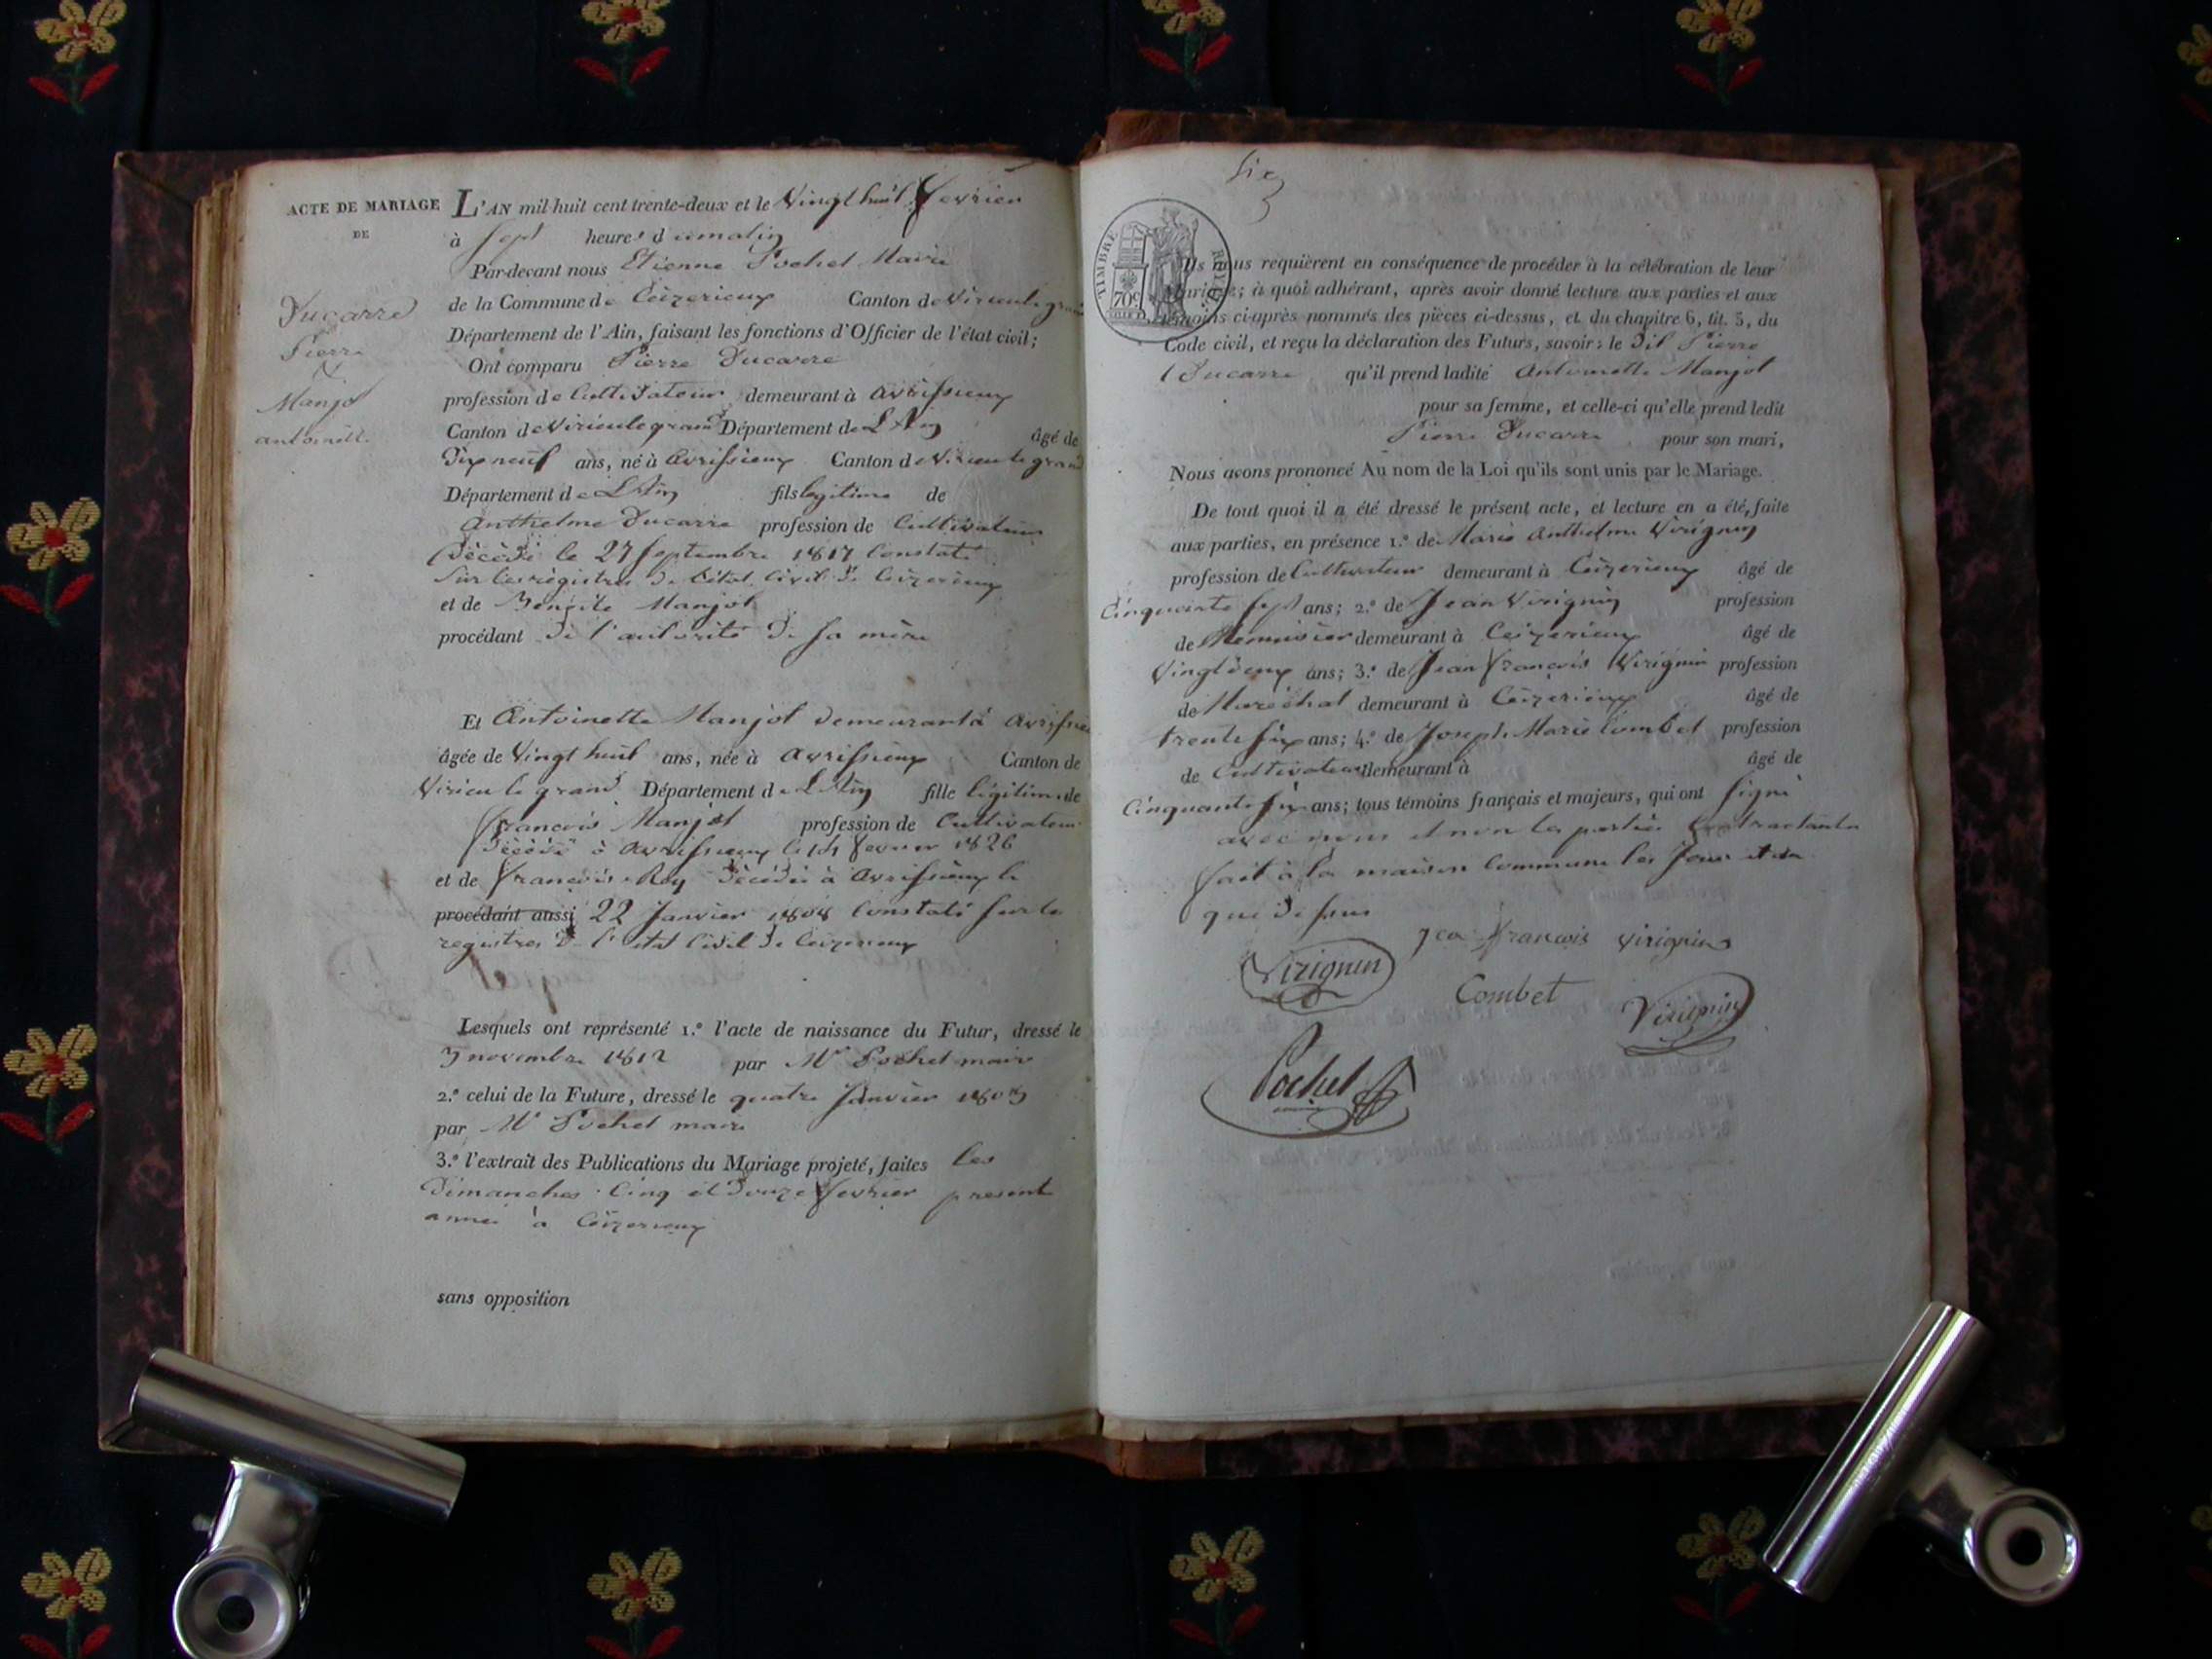 ACTE DE MARIAGE
DE
Ducarre
Pierre
&
Manjot
antoinette
L'AN mil huit cent trente-deux et le Vingt huit fevrier
à sept heures du matin
Par-devant nous Etienne Pochet Maire
de la Commune de Ceizerieux Canton de Virieu le grand
Département de l'Ain, faisant les fonctions d'Officier de l'état civil;
Ont comparu Pierre Ducarre
profession de Cultivateur demeurant à avrissieux
Canton de Virieu le grand Département de L'Ain âgé de
Dix neuf ans, né à avrissieux Canton de Virieu le grand
Département de L'Ain fils legitime de
Anthelme Ducarre profession de Cultivateur
Décédé le 27 septembre 1817 Constaté
sur les registres de l'état Civil de Ceizerieux
et de Benoite Manjot
procédant de l'autorité de sa mère
Et Antoinette Manjot demeurant à avrissieux
âgée de Vingt huit ans, née à avrissieux Canton de
Virieu le grand Département de L'Ain fille légitime de
francois Manjot profession de Cultivateur
Décédé à avrissieux le fevrier 1826
et de francoise Roy Décédée à avrissieux le
procédant aussi 22 Janvier 1808 Constaté sur les
registres de l'état Civil de Ceizerieux
Lesquels ont représenté 1.º l'acte de naissance du Futur, dressé le
novembre 1812 par Mr Pochet maire
2.º celui de la Future, dressé le quatre Janvier
par Mr Pochet maire
3.º l'extrait des Publications du Mariage projeté, faites les
Dimanches Cinq et Douze fevrier present
année à Ceizerieux
sans opposition
six
TIMBRE ROYAL
70c
Ils nous requièrent en conséquence de procéder à la célébration de leur
Mariage; à quoi adhérant, après avoir donné lecture aux parties et aux
témoins ci-après nommés des pièces ci-dessus, et du chapitre 6, tit. 5, du
Code civil, et reçu la déclaration des Futurs, savoir: le Dit Pierre
Ducarre qu'il prend ladite Antoinette Manjot
pour sa femme, et celle-ci qu'elle prend ledit
Pierre Ducarre pour son mari,
Nous avons prononcé Au nom de la Loi qu'ils sont unis par le Mariage.
De tout quoi il a été dressé le présent acte, et lecture en a été faite
aux parties, en présence 1.º de Marie Anthelme Virignin
profession de Cultivateur demeurant à Ceizerieux âgé de
Cinquante sept ans; 2.º de Jean Virignin profession
de Menuisier demeurant à Ceizerieux âgé de
Vingt deux ans; 3.º de Jean françois Virignin profession
de Maréchal demeurant à Ceizerieux âgé de
trente six ans; 4.º de Joseph Marie Combet profession
de Cultivateur demeurant à âgé de
Cinquante six ans; tous témoins français et majeurs, qui ont signé
avec nous et non les parties Contractantes
fait à la maison Commune les Jour et an
que dessus
Jea françois virignin
Virignin
Combet
Virignin
Pochet